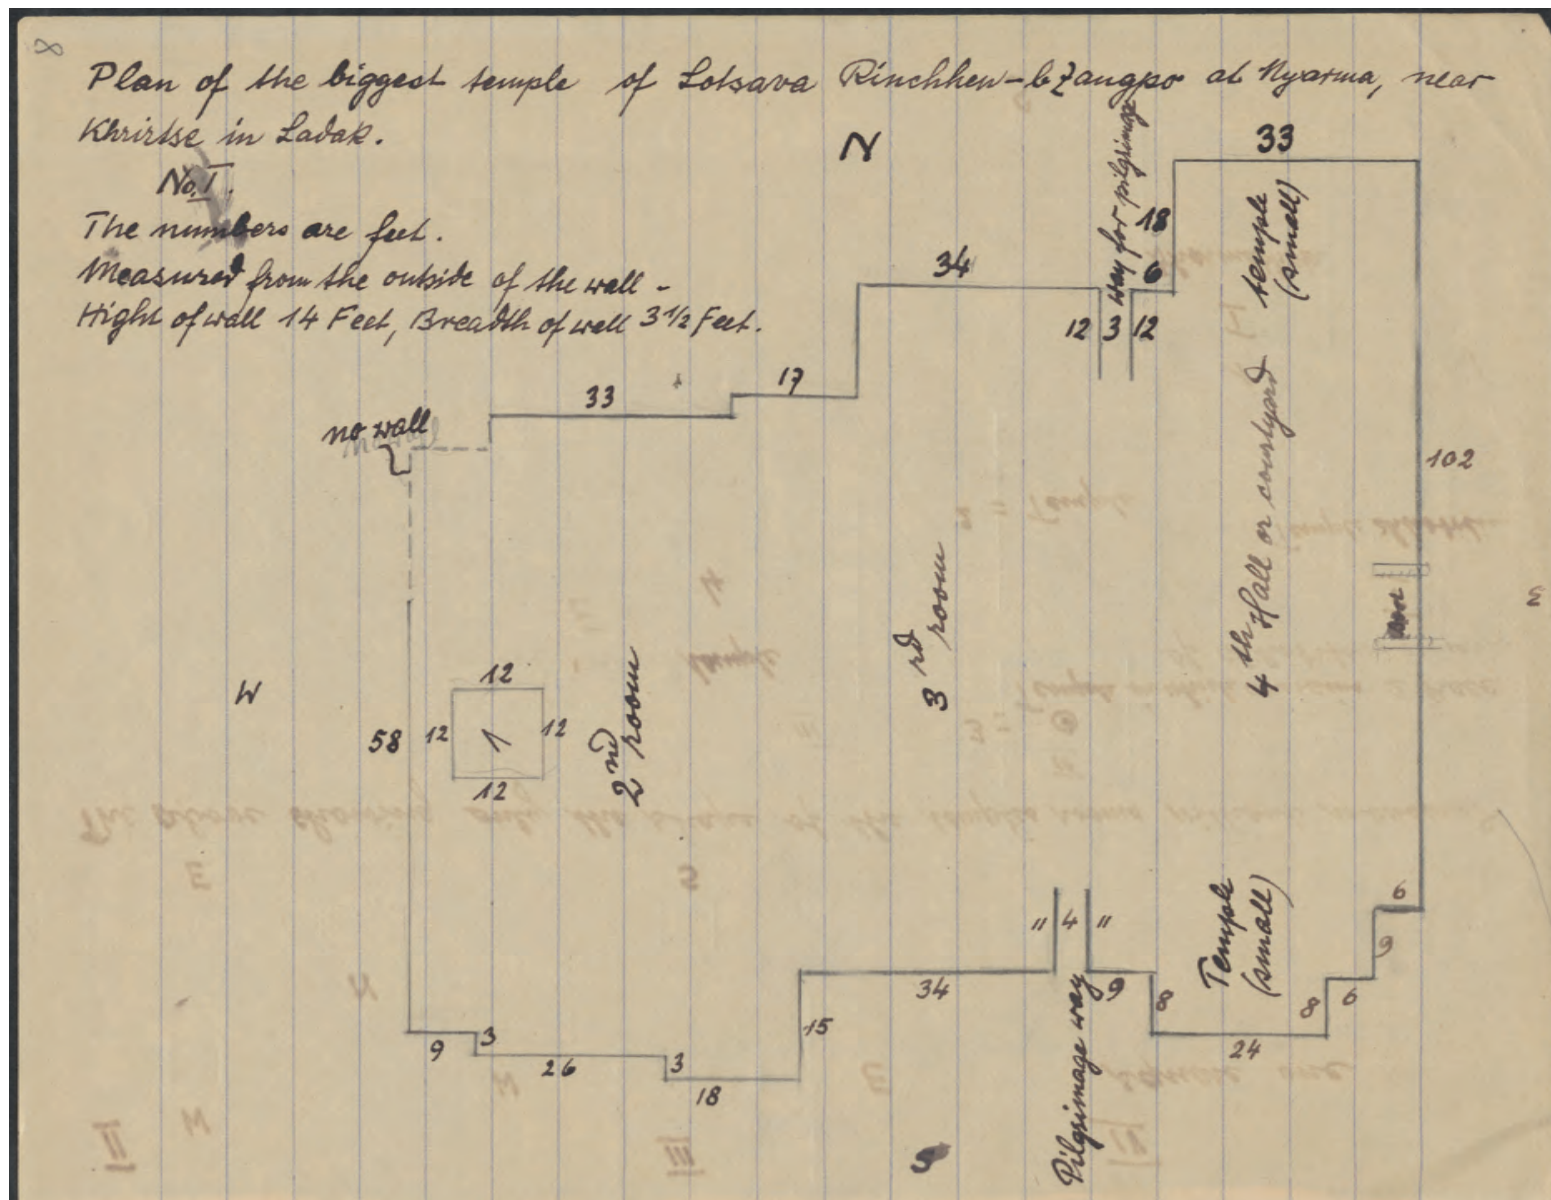 8
Plan of the biggest temple of Lotsava Rinchhen-bZangpo at Nyarma, near
Khrirtse in Ladak.
No. I.
The numbers are feet.
Measured from the outside of the wall -
Hight of wall 14 Feet, Breadth of well 3 1/2 Feet.
N
33
way for pilgrimage
18
temple
(small)
34
6
12 3 12
17
33
no wall
102
4th Hall or courtyard
3rd room
2nd room
W
58
12
12 1 12
12
Temple
(small)
6
9
" 4 "
34
9
8
8
6
15
3
9
26
3
18
24
Pilgrimage way
S
4
temple
2 = Temple
E
S
N
W
E
II
III
IV